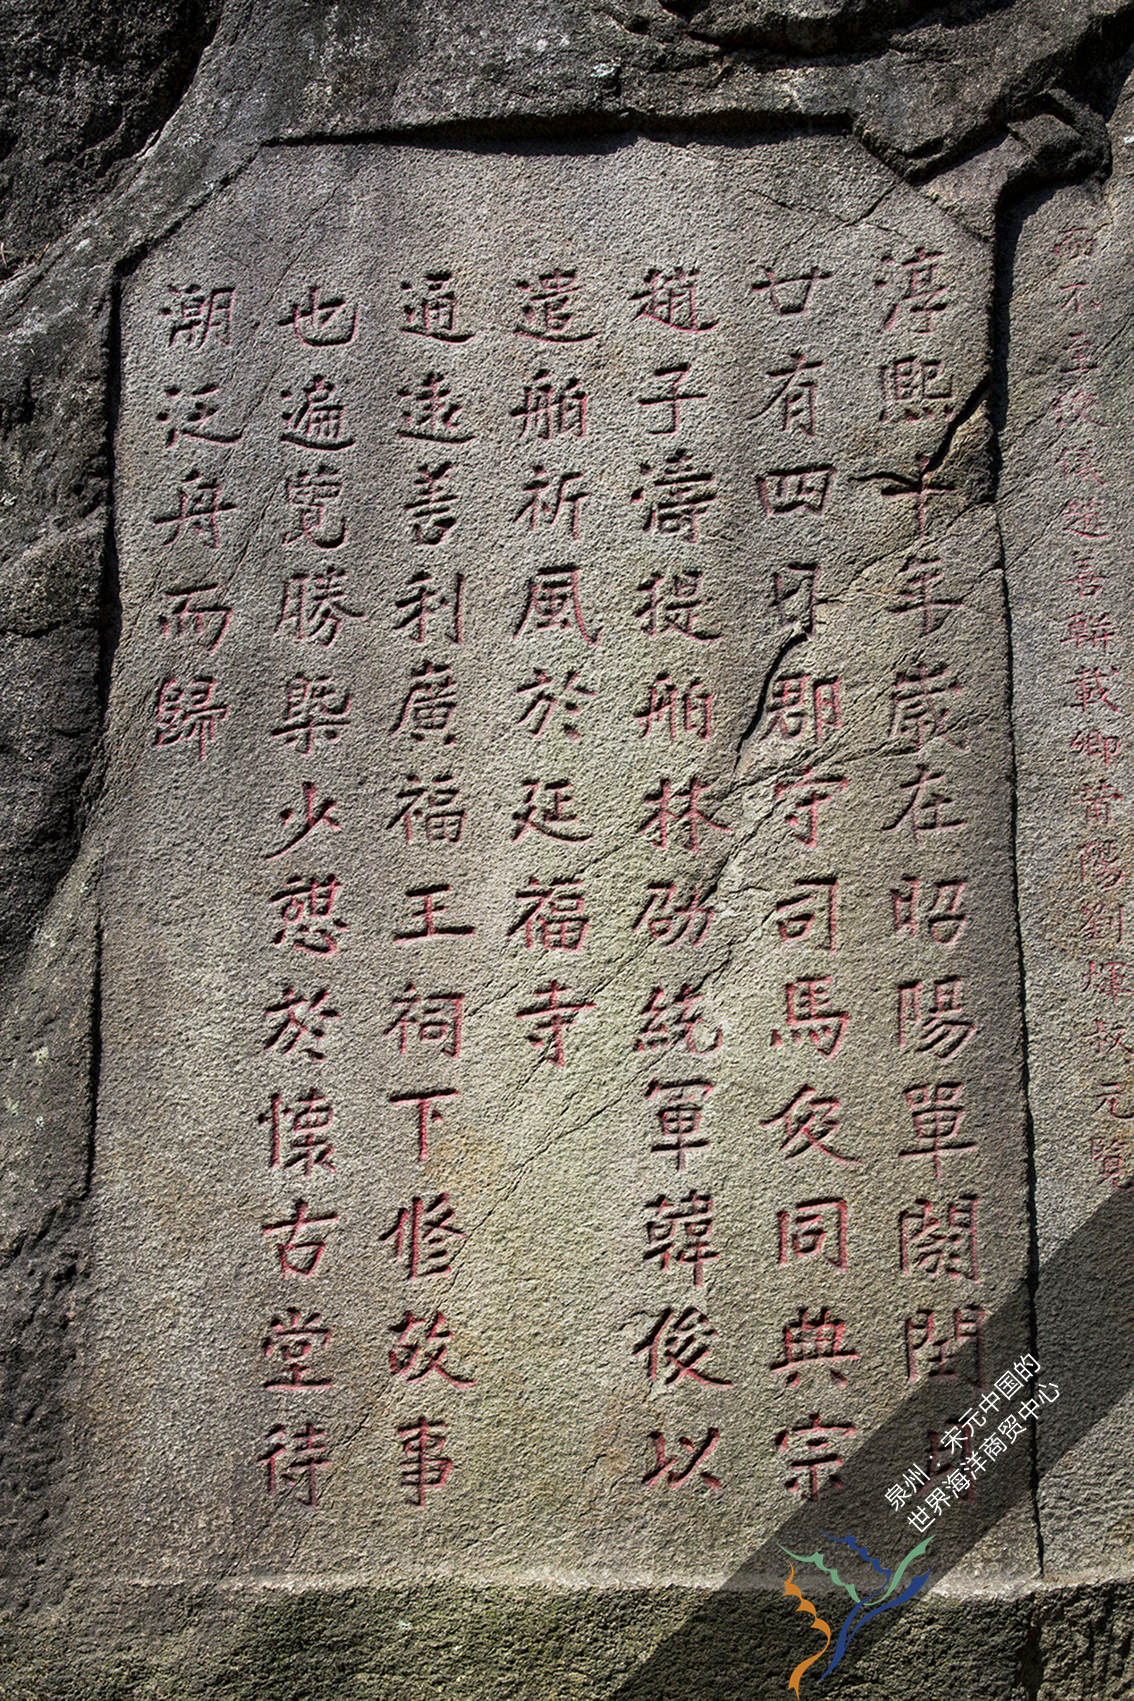 而不至後俟趙善
淳熙十年歲在昭陽單閼閏月
廿有四日郡守司馬伋同典宗
趙子濤提舶林劭統軍韓俊以
遣舶祈風於延福寺
通遠善利廣福王祠下修故事
也遍覽勝槩少憩於懷古堂待
潮泛舟而歸
泉州：宋元中国的
世界海洋商贸中心